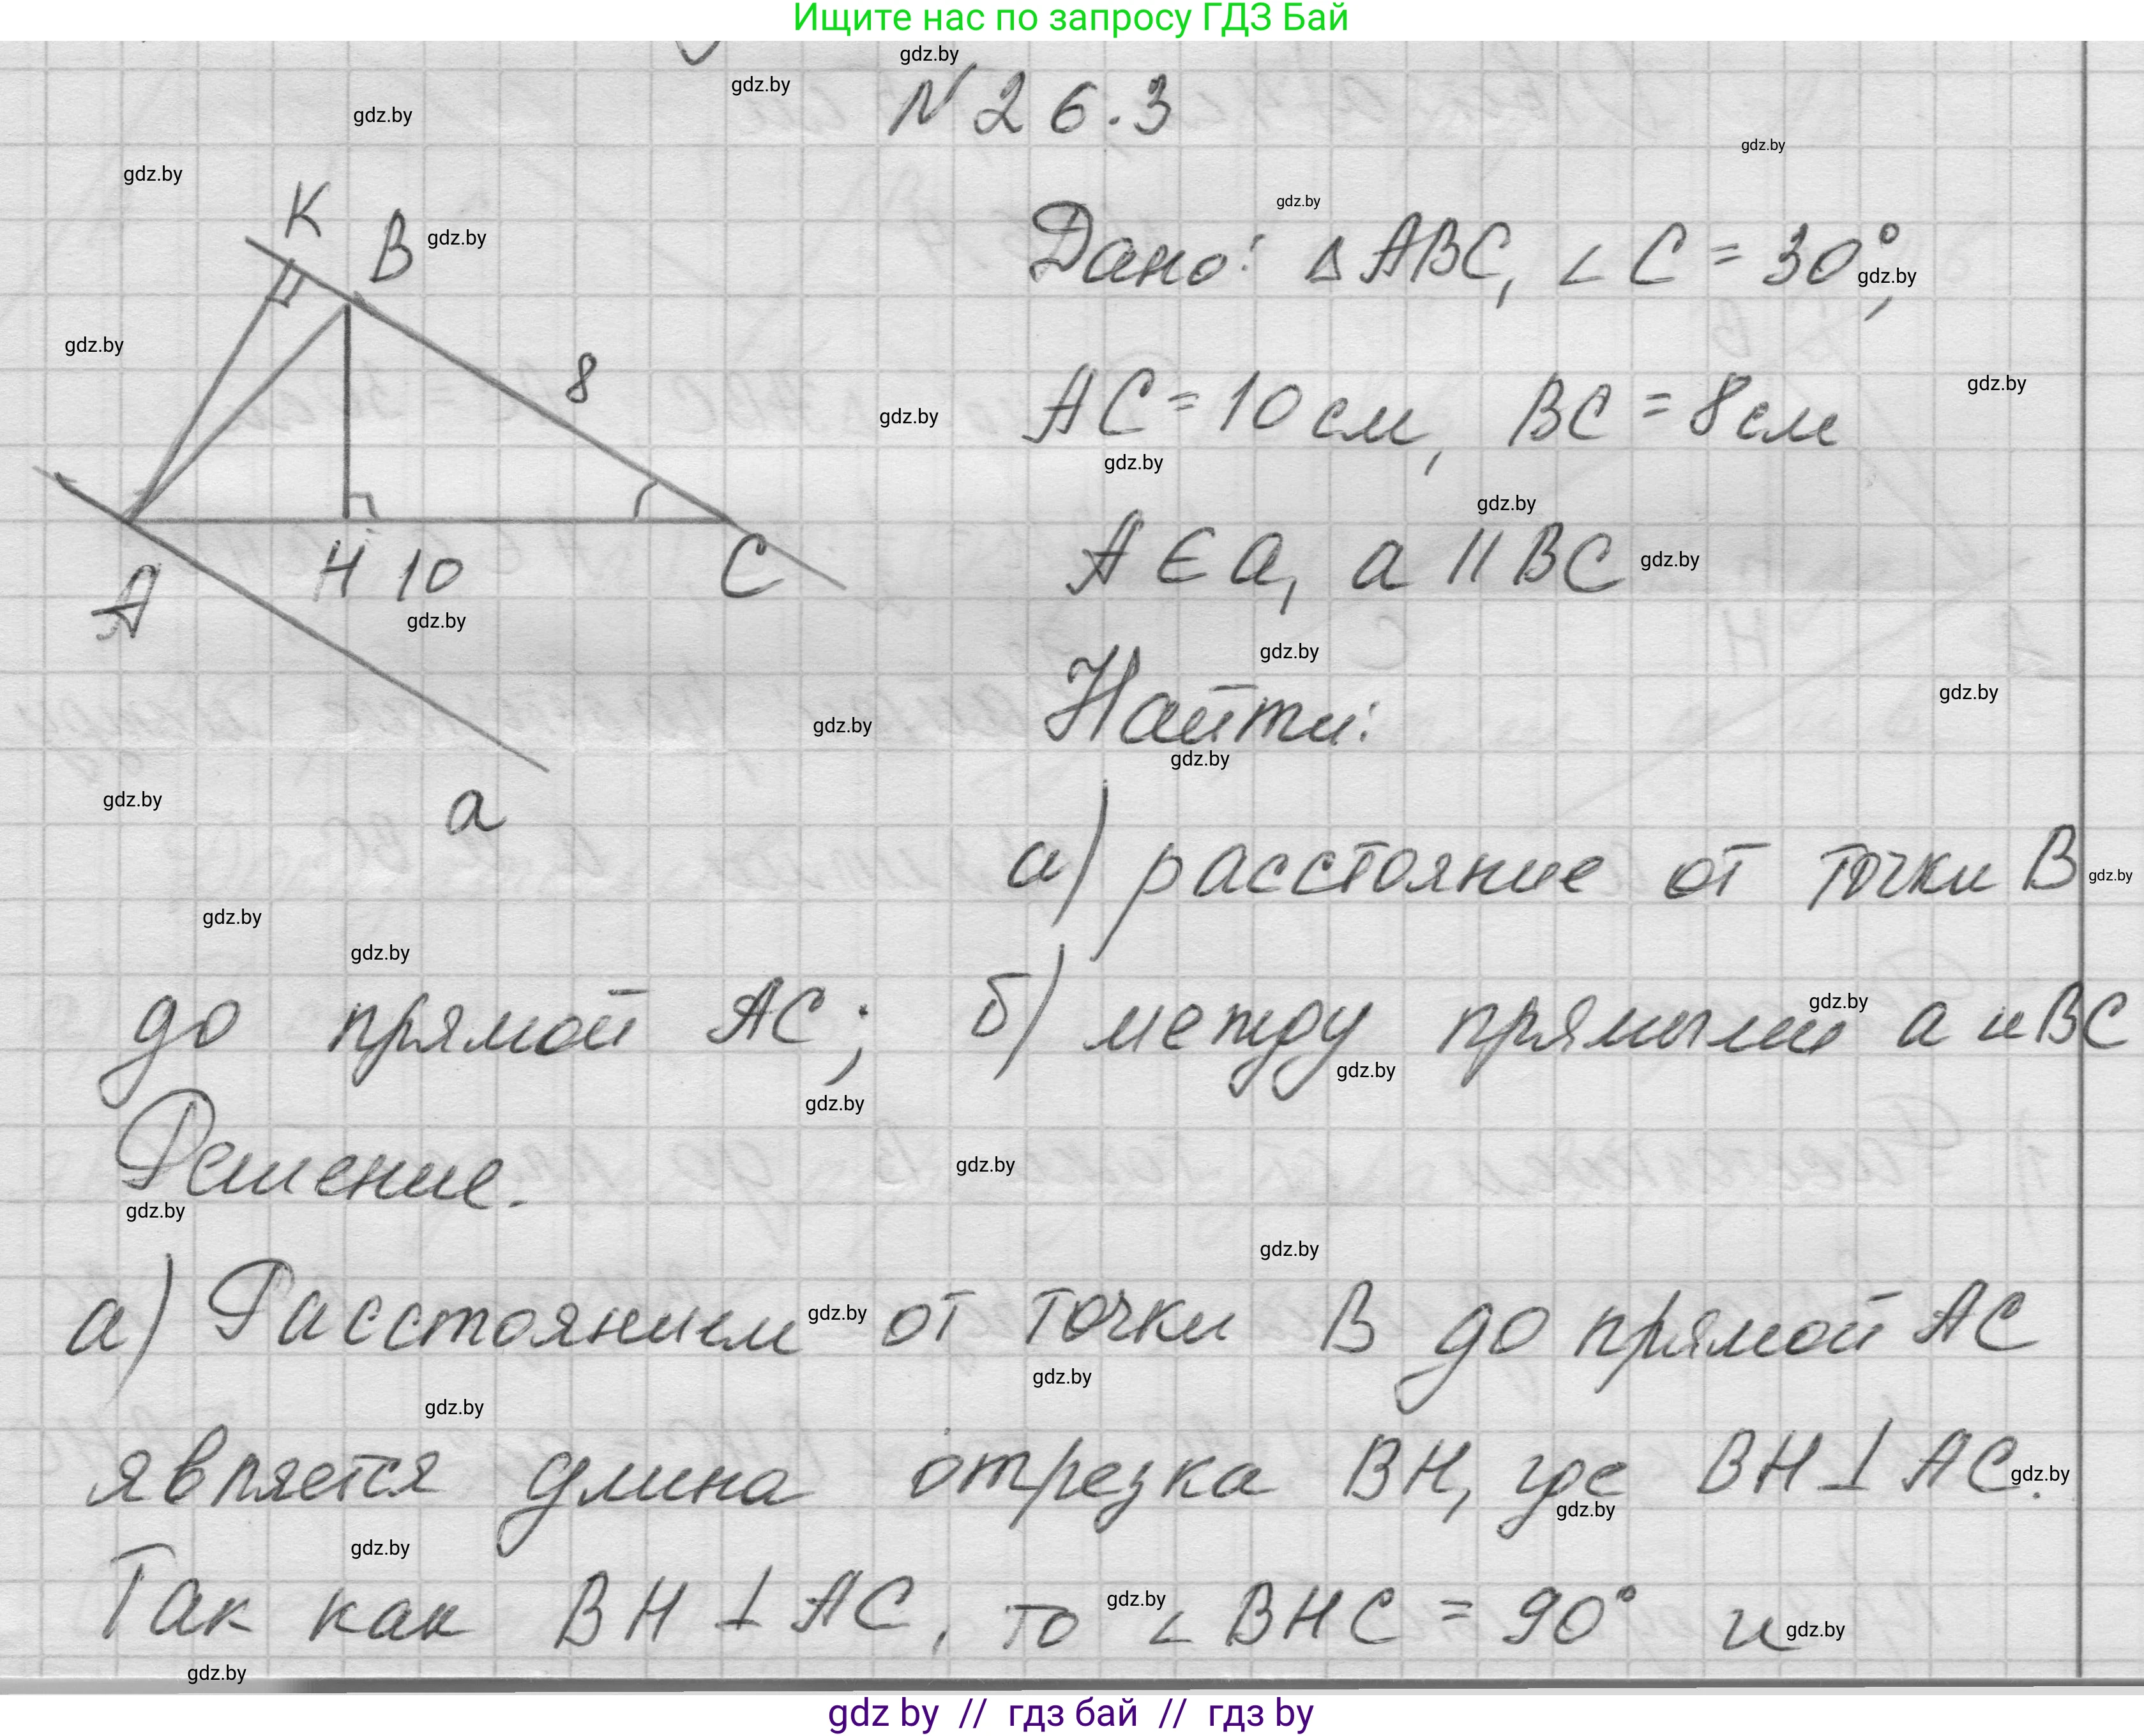 Ищите нас по запросу ГДЗ Бай
N 26.3
Дано: Δ ABC, ∠ C = 30°,
AC = 10 см, BC = 8 см
A ∈ a, a || BC
Найти:
а) расстояние от точки B
до прямой AC; б) между прямыми a и BC
Решение.
а) Расстоянием от точки B до прямой AC
является длина отрезка BH, где BH ⊥ AC.
Так как BH ⊥ AC, то ∠ BHC = 90° и
K
B
8
A
H
10
C
a
gdz.by
gdz by // гдз бай // гдз by